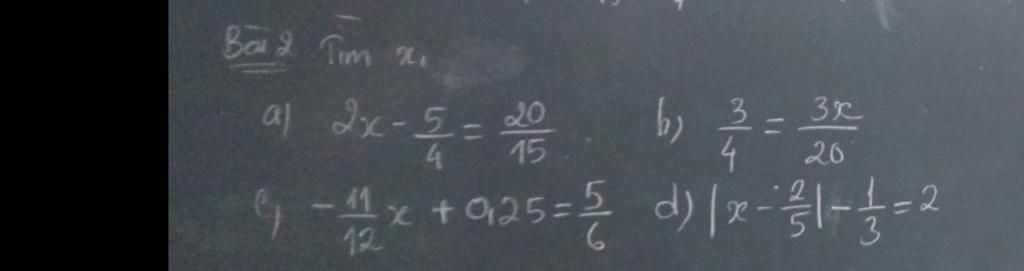 Bài 2 Tìm x.
a) 2x - 5/4 = 20/15 b) 3/4 = 3x/20
c) -11/12 x + 0,25 = 5/6 d) |x - 2/5| - 1/3 = 2